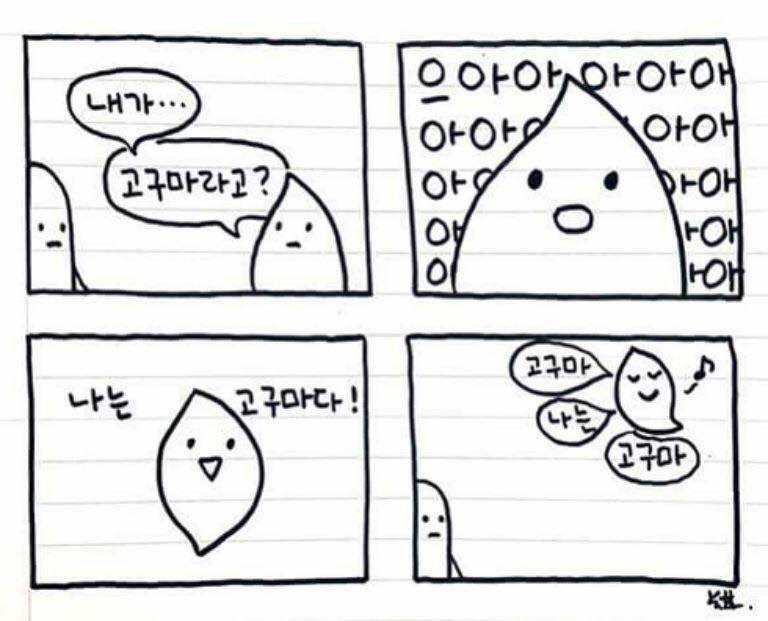 내가...
고구마라고?
으아아아아아
아아아아
아아
아아
아
나는 고구마다!
고구마
나는
고구마